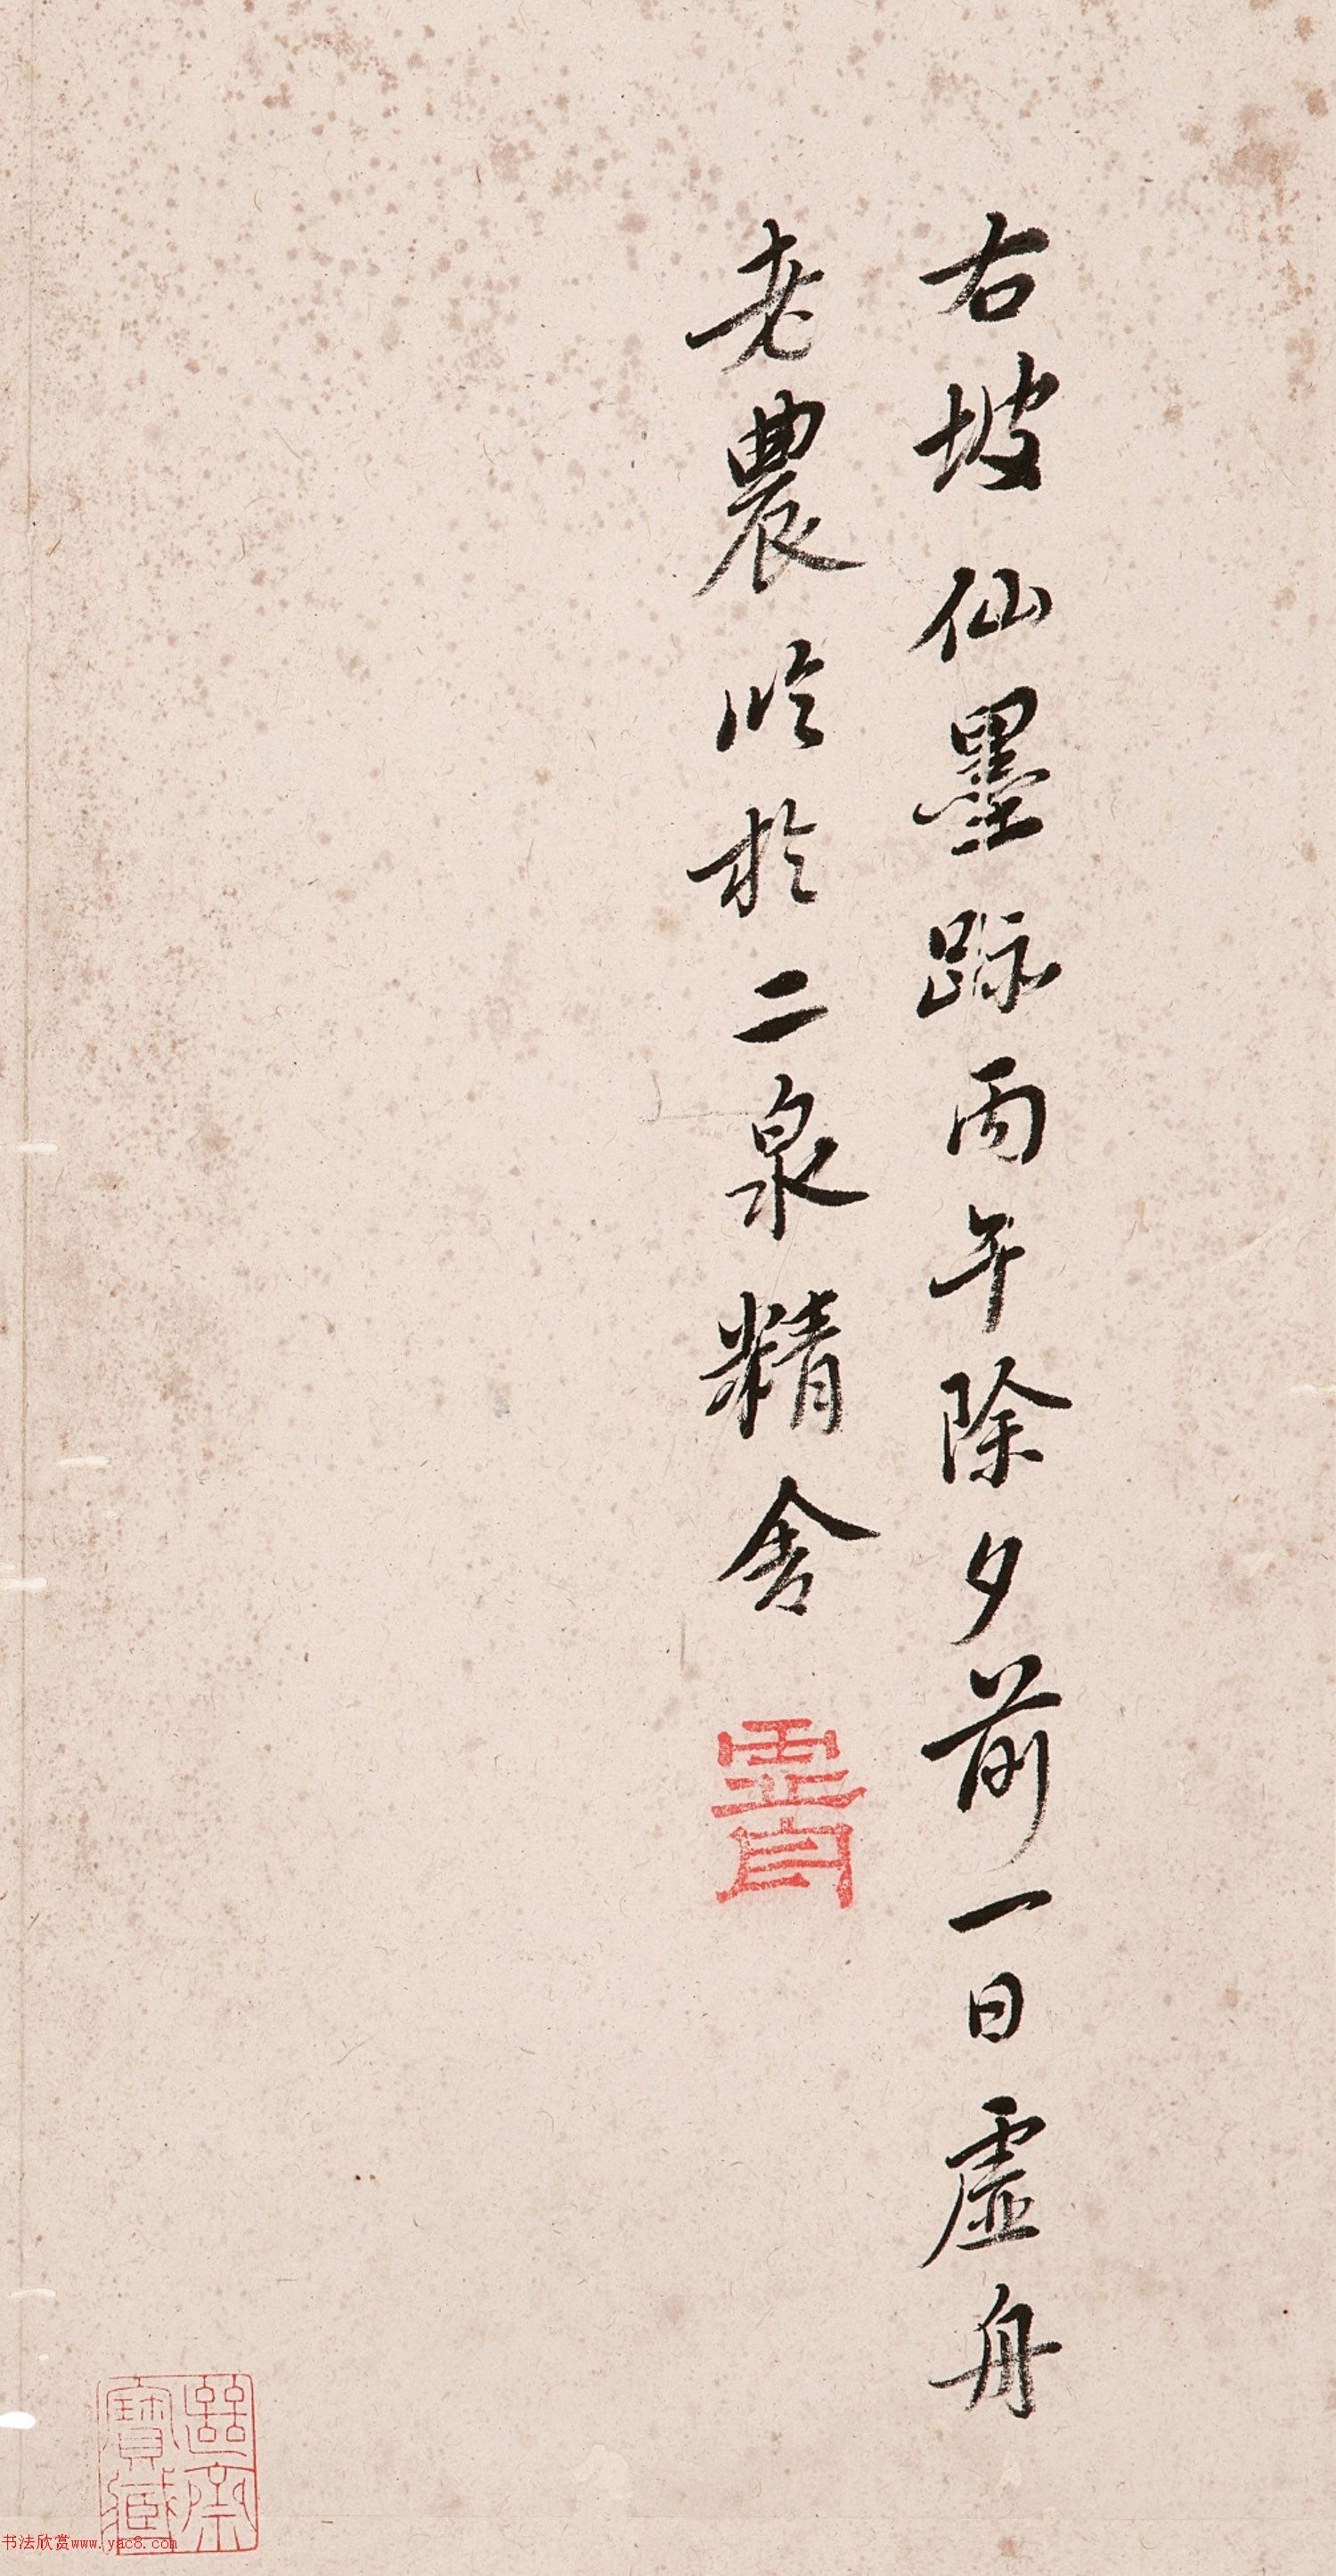 右坡仙墨跡丙午除夕前一日虛舟
老農臨於二泉精舍
齋
寶藏
书法欣赏www.yac8.com